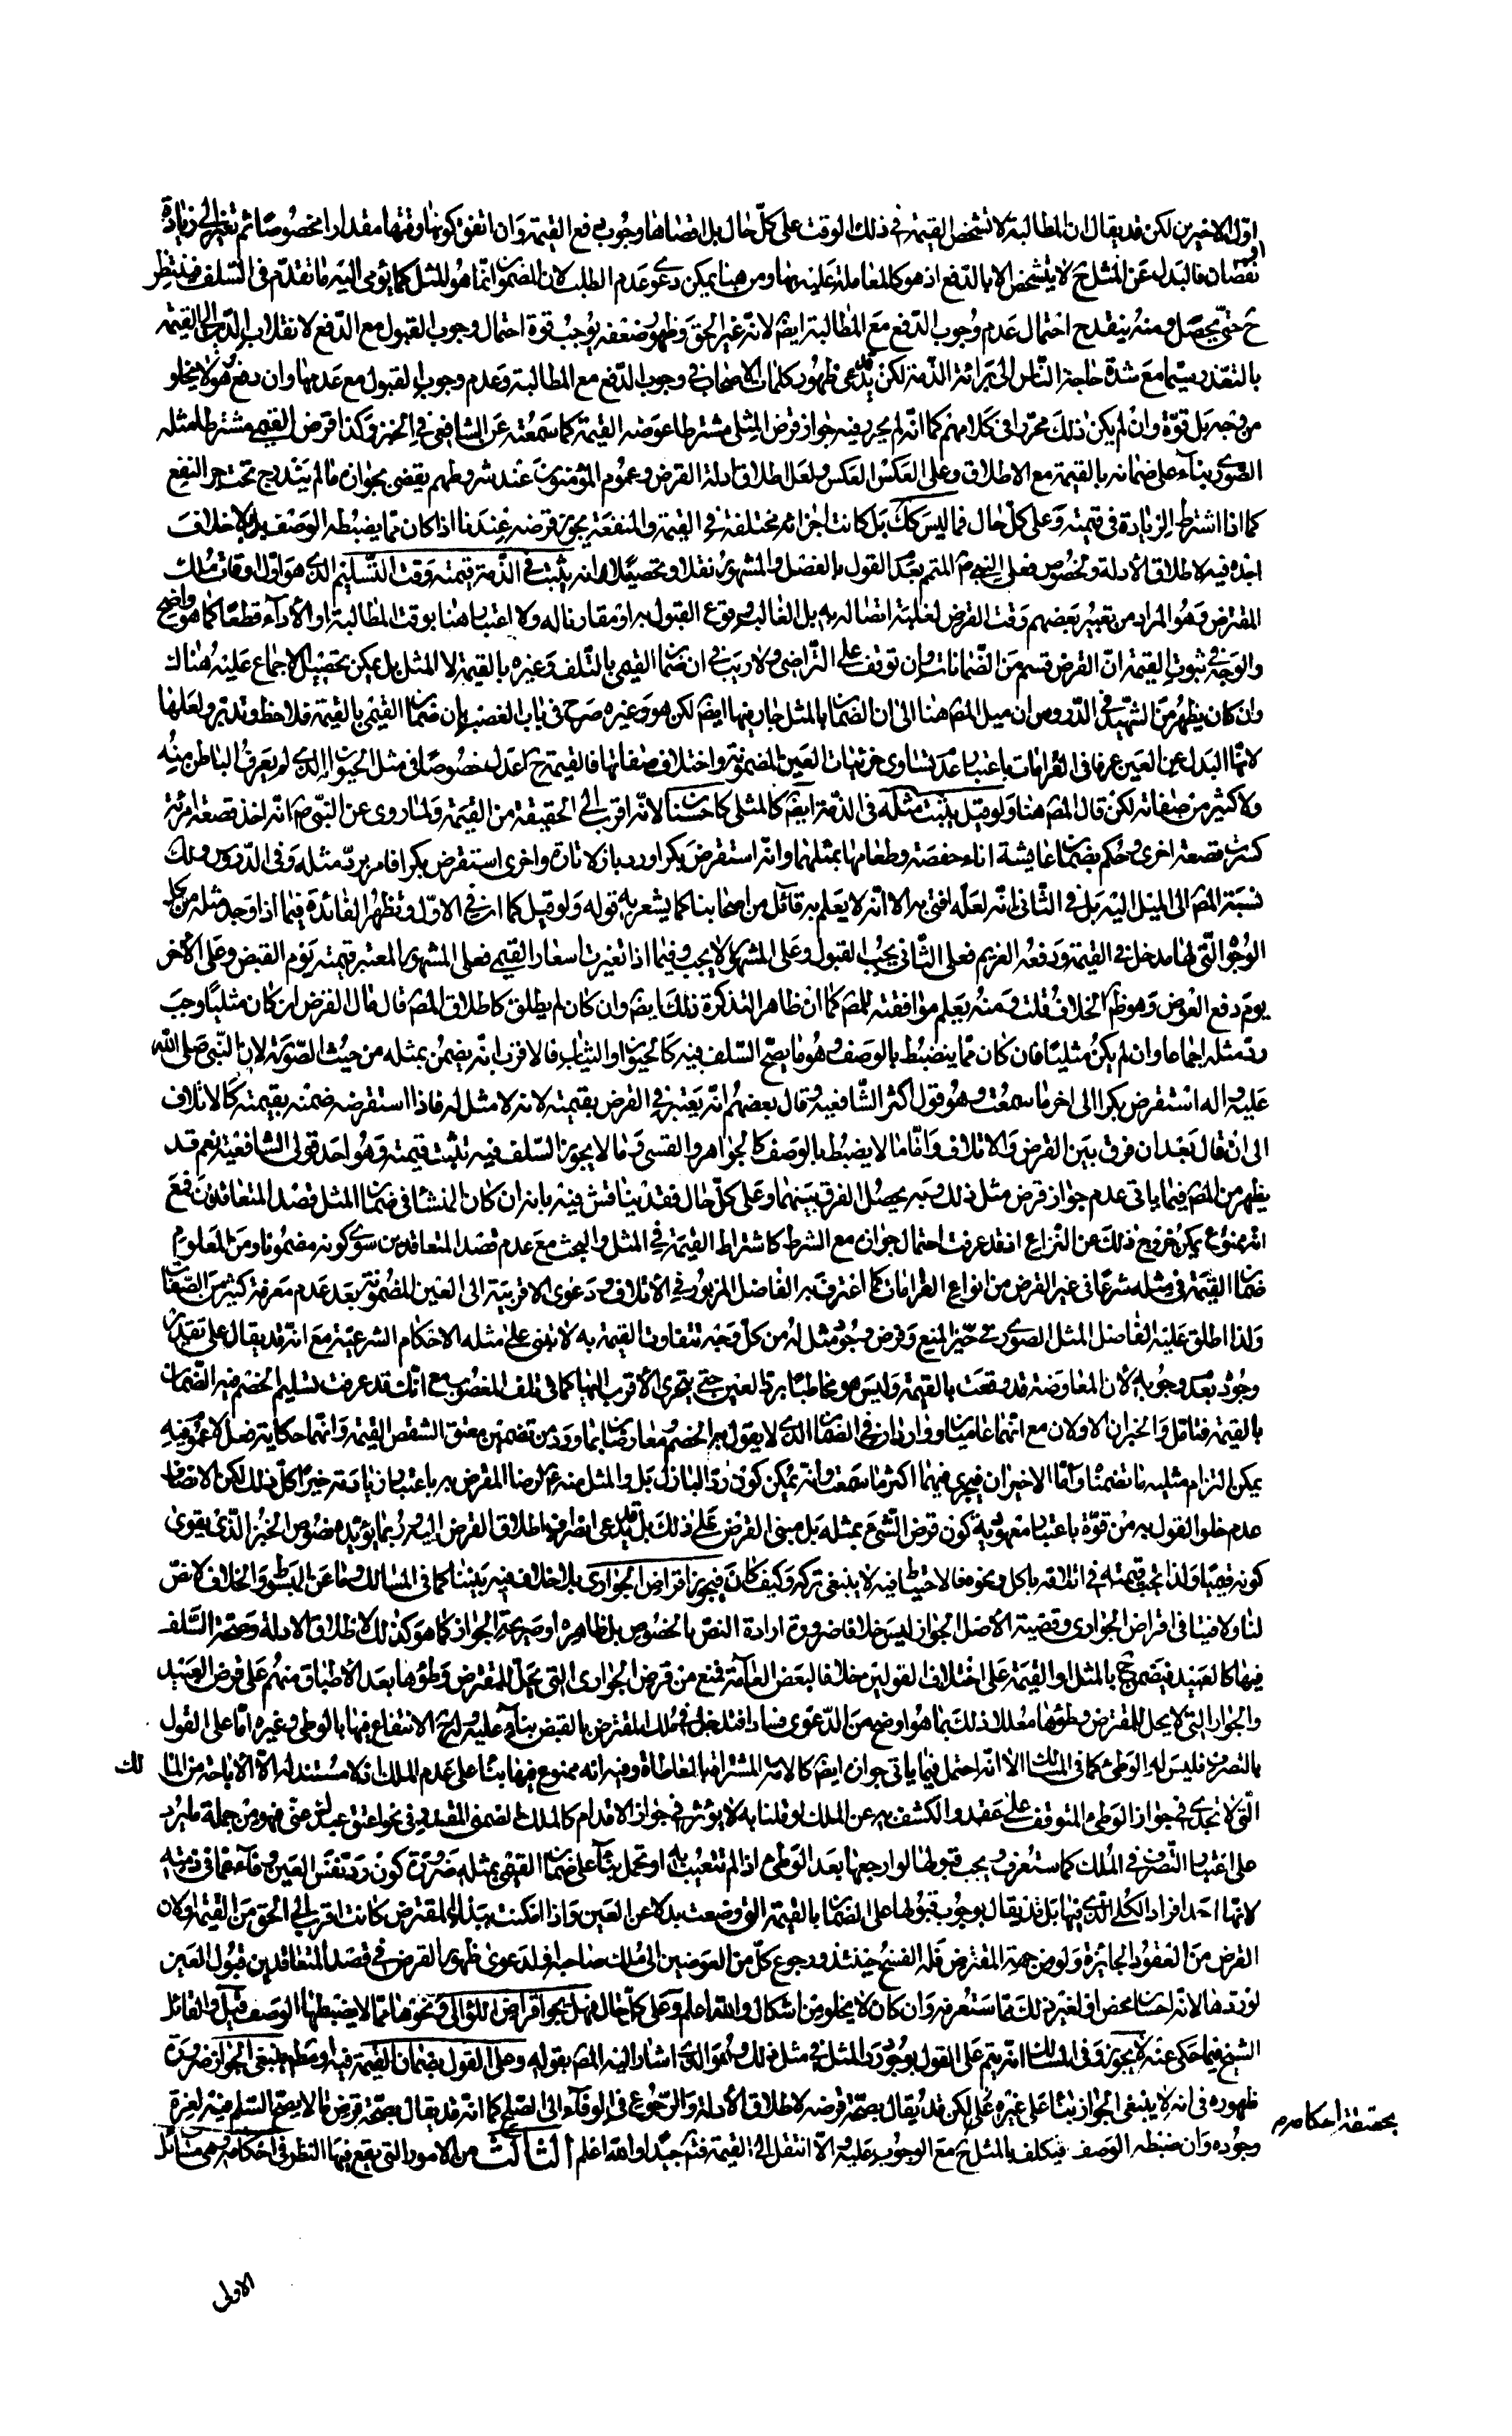 اول الاخيرين لكن قد يقال ان المطالبة لا تشخص القيمة في ذلك الوقت على كل حال بل اقتضاها وجوب دفع القيمة وان اتفق كونها وقتها مقدارا مخصوصا ثم تغير الى زيادة
او نقصان فالبدل عن المثل ح لا يتشخص الا بالدفع اذ هو كالمعاملة عليه بها ومن هنا يمكن دعوى عدم الطلب لان المضمون انما هو المثل كما يؤمى اليه ما تقدم في السلف فينتظر
ح حتى يحصل ومنه ينقدح احتمال عدم وجوب الدفع مع المطالبة ايضا لانه غير الحق وظهور ضعفه يوجب قوة احتمال وجوب القبول مع الدفع لانقلاب الذمة الى القيمة
بالتعذر سيما مع شدة حاجة الناس الى برائة الذمة لكن قد يدعى ظهور كلمات الاصحاب في وجوب الدفع مع المطالبة وعدم وجوب القبول مع عدمها وان دفع هو لا يخلو
من وجه بل قوة وان لم يكن ذلك محررا في كلامهم كما انه لم يحرر فيه جواز قرض المثلي مشترطا عوضه القيمة كما سمعته عن الشافعي في الخبز وكذا قرض القيمي مشترطا مثله
الصوري بناء على ضمانه بالقيمة مع الاطلاق وعلى العكس العكس ولعل اطلاق ادلة القرض وعموم المؤمنون عند شروطهم يقضي بجوازه ما لم يندرج تحت جر النفع
كما اذا اشترط الزيادة في قيمته وعلى كل حال فما ليس كك بل كانت اجزائه مختلفة في القيمة والمنفعة يجوز قرضه عندنا اذا كان مما يضبطه الوصف بل لا خلاف
اجده فيه لاطلاق الادلة وخصوص فعل النبي ص المتمم بعد القول بالفصل والمشهور نقلا وتحصيلا انه يثبت في الذمة قيمته وقت التسليم الذي هو اول اوقات ملك
المقترض وهو المراد من تعبير بعضهم وقت القرض لغلبة اتصاله به بل الغالب وقوع القبول به او مقارناله ولا اعتبار هنا بوقت المطالبة او الأداء قطعا كما هو واضح
والوجه في ثبوت القيمة ان القرض قسم من الضمانات وان توقف على التراضي ولا ريب في ان ضمان القيمي بالتلف وغيره بالقيمة لا المثل بل يمكن تحصيل الاجماع عليه هناك
وان كان يظهر من الشهيد في الدروس ان ميل المص هنا الى ان الضمان بالمثل جار فيها ايضا لكن هو وغيره صرح في باب الغصب بان ضمان القيمي بالقيمة فلاحظ وتدبر ولعلها
لانها البدل عن العين عرفا في الغرامات باعتبار عدم تساوي جزئيات العين المضمونة واختلاف صفاتها فالقيمة ح اعدل خصوصا في مثل الحيوان الذي لم يعرف الباطن منه
ولا كثير من صفاته لكن قال المص هنا ولو قيل يثبت مثله في الذمة ايضا كالمثلي كان حسنا لانه اقرب الى الحقيقة من القيمة ولما روى عن النبي ص انه اخذ قصعة امرئة
كسرت قصعة اخرى وحكم بضمان عايشة اناء حفصة وطعامها بمثلهما وانه استقرض بكرا ورد بازلا تارة واخرى استقرض بكرا فامر برد مثله وفي الدروس ولك
نسبة المص الى الميل اليه بل في الثاني انه لعله افتى به الا انه لا يعلم به قائل من اصحابنا كما يشعر به قوله ولو قيل كما ان في الاول وتظهر الفائدة فيما اذا وجد مثله من كل
الوجوه التي لها مدخل في القيمة ودفعه الغريم فعلى الثاني يجب القبول وعلى المشهور لا يجب وفيما اذا تغيرت اسعار القيمي فعلى المشهور المعتبر قيمته يوم القبض وعلى الأخر
يوم دفع العوض وهو ظاهر الخلاف قلت ومنه يعلم موافقته للمص كما ان ظاهر التذكرة ذلك ايضا وان كان لم يطلق كاطلاق المص قال مال القرض ان كان مثليا وجب
رد مثله اجماعا وان لم يكن مثليا فان كان مما ينضبط بالوصف وهو ما يصح السلف فيه كالحيوان والثياب فالاقرب انه يضمن بمثله من حيث الصورة لان النبي صلى الله
عليه واله استقرض بكرا الى اخر ما سمعت وهو قول اكثر الشافعية وقال بعضهم انه يعتبر في القرض بقيمته لانه لا مثل له فاذا استقرضه ضمنه بقيمته كالاتلاف
الى ان قال بعد ان فرق بين القرض والاتلاف واما ما لا يضبط بالوصف كالجواهر والقسي وما لا يجوز السلف فيه تثبت قيمته وهو احد قولي الشافعية نعم قد
يظهر من المص فيما ياتي عدم جواز قرض مثل ذلك وبه يحصل الفرق بينهما وعلى كل حال فقد يناقش فيه بانه ان كان المنشأ في ضمان المثل قصد المتعاقدين فمع
انه ممنوع يمكن خروج ذلك عن النزاع اذ قد عرفت احتمال جوازه مع الشرط كاشتراط القيمة في المثل والبحث مع عدم قصد المتعاقدين سوى كونه مضمونا ومن المعلوم
ضمان القيمة في مثله شرعا في غير القرض من انواع الغرامات كما اعترف به الفاضل المزبور في الأتلاف ودعوى الاقربية الى العين المضمونة بعد عدم معرفة كثير من الصفات
ولذا اطلق عليه الفاضل المثل الصوري في حيز المنع وفرض وجود مثل له من كل وجه تتفاوت القيمة به لا تبنى على مثله الاحكام الشرعية مع انه قد يقال على تقدير
وجوده بعدم وجوبه لأن المعاوضة قد وقعت بالقيمة وليس هو مخاطبا برد العين حتى يتحرى الأقرب اليها كما في تلف المغصوب مع انك قد عرفت تسليم الخصم فيه الضمان
بالقيمة فتامل والخبران الاولان مع انهما عاميان وواردان في الضمان الذي لا يقول به الخصم معارضان بما ورد من تضمين معتق الشقص القيمة وانهما حكاية فعل لا عموم فيه
يمكن التزام مثليه ما تضمناه واما الاخيران فيجري فيهما اكثر ما سمعت وانه يمكن كون رد البازل بل والمثل منه عن رضا المقرض به باعتبار زيادته خيرا كل ذلك لكن الانصاف
عدم خلو القول به من قوة باعتبار معهودية كون قرض الشيء بمثله بل مبنى القرض على ذلك بل قد يدعى انصراف اطلاق القرض اليه وربما يؤيده خصوص الخبز الذي يقوى
كونه قيميا ولذا تجب قيمته في اتلافه باكل ونحوه فالاحتياط فيه لا ينبغي تركه وكيف كان فيجوز اقراض الجواري بلا خلاف فيه بيننا كما في المسالك وما عن المبسوط والخلاف لا نص
لنا ولا فتيا في اقراض الجواري وقضية الأصل الجواز ليس خلافا ضرورة ارادة النص بالخصوص بل ظاهره او صريحه الجواز كما هو كذلك لاطلاق الادلة وصحة السلف
فيها كالعبيد فيضمن ح بالمثل او القيمة على اختلاف القولين خلافا لبعض العامة فمنع من قرض الجواري التي تحل للمقترض وطؤها بعد الأطباق منهم على قرض العبيد
والجوار التي لا يحل للمقترض وطؤها معللا ذلك بما هو اوضح من الدعوى فسادا فتدخل في ملك المقترض بالقبض بناء عليه ولح الانتفاع فيها بالوطي وغيره اما على القول
بالتصرف فليس له الوطي كما في المسالك الا انه احتمل فيما ياتي جوازه ايضا كالامة المشتراة بالمعاطاة وفيه انه ممنوع فيها بناء على عدم الملك اذ لا مستند له الا الأباحة من المالك
التي لا تجدي في جواز الوطي المتوقف على عقد والكشف به عن الملك لو قلنا به لا يؤثر في جواز الاقدام كالملك الضمني المقدر في نحو اعتق عبدك عني فهو من جملة ما يرد
على اعتبار التصرف في الملك كما ستعرف ويجب قبولها لو ارجعها بعد الوطي اذا لم تتعيب به او تحمل بناء على ضمان القيمي بمثله ضرورة كون رد نفس العين وفاء عما في ذمته
لانها احد افراد الكلي الذي فيها بل قد يقال بوجوب قبولها على الضمان بالقيمة التي وضعت بدلا عن العين واذا امكنت ببذل المقترض كانت اقرب الى الحق من القيمة ولان
القرض من العقود الجائزة ولو من جهة المقترض فله الفسخ حينئذ ورجوع كل من العوضين الى ملك صاحبه ولدعوى ظهور القرض في قصد المتعاقدين قبول العين
لو ردها لانه احسان محض او لغير ذلك مما ستعرفه وان كان لا يخلو من اشكال والله اعلم وعلى كل حال فهل يجوز اقراض اللئالي ونحوها مما لا يضبطها الوصف قيل والقائل
الشيخ فيما حكى عنه لا يجوز وفي المسالك انه يتم على القول بوجوب رد المثل في مثل ذلك وهو الذي اشار اليه المص بقوله وعلى القول بضمان القيمة فيه ومطلقا ينبغي الجواز ضرورة
ظهوره في انه لا ينبغي الجواز بناء على غيره لكن قد يقال بصحة قرضه لاطلاق الأدلة والرجوع في الوفاء الى الصلح كما انه قد يقال بصحة قرض ما لا يصح السلم فيه لعزة
وجوده وان ضبطه الوصف فيكلف بالمثل ح مع الوجوب عليه والا انتقل الى القيمة فتم جيدا والله اعلم الثالث من الامور التي يقع فيها النظر في احكامه وهي مسائل
بحقيقة احكامه م
الاولى